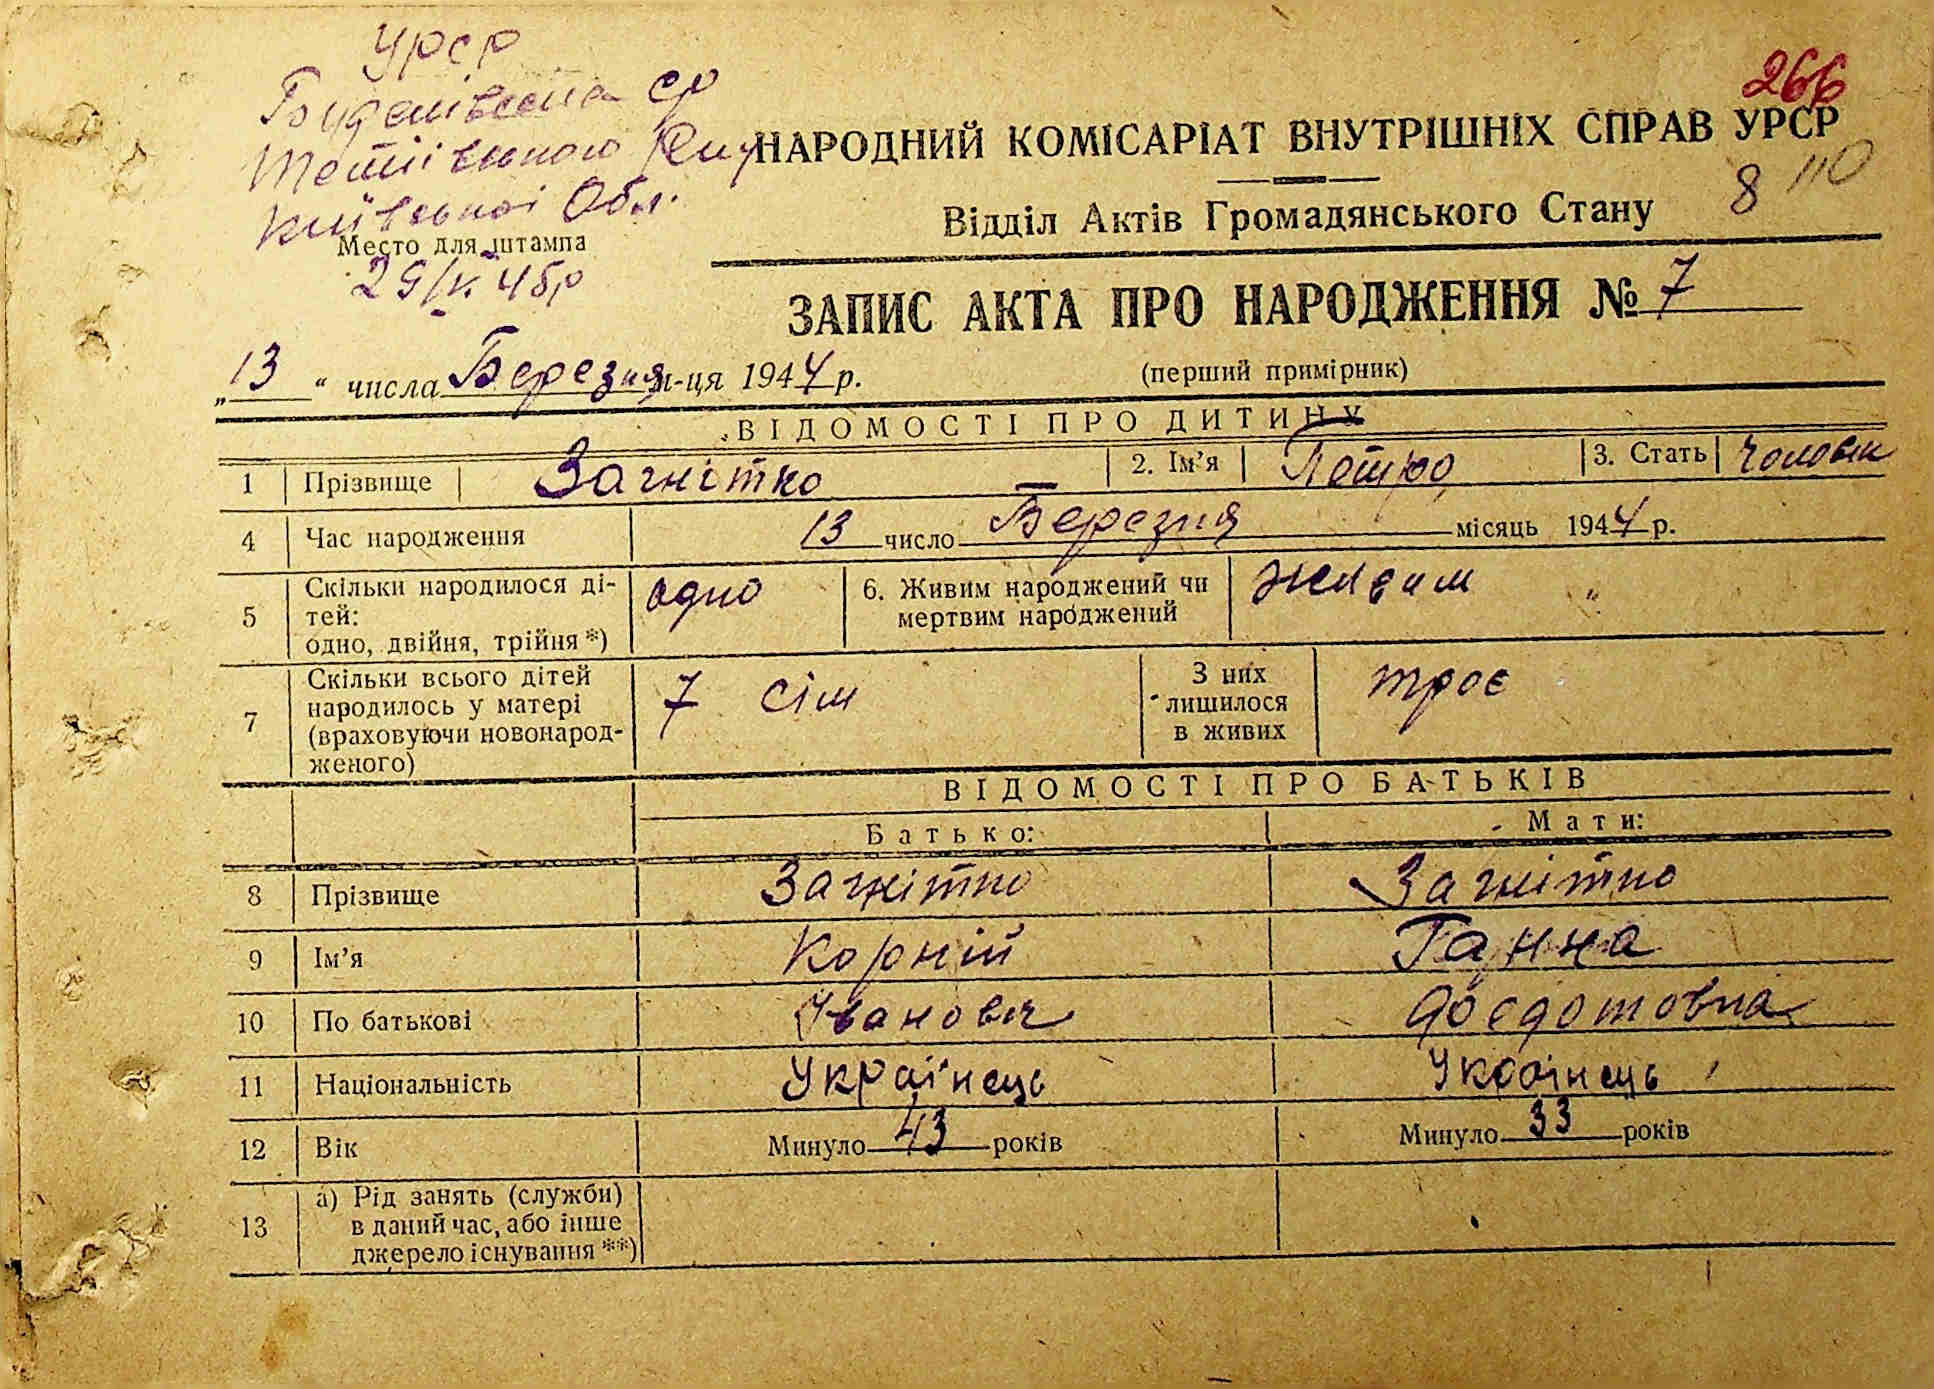 УРСР
266
Буденівська ср
Тетіївського р-ну
НАРОДНИЙ КОМІСАРІАТ ВНУТРІШНІХ СПРАВ УРСР
8 110
Київської Обл.
Відділ Актів Громадянського Стану
Место для штампа
29/V. 45р
ЗАПИС АКТА ПРО НАРОДЖЕННЯ № 7
„13“ числа Березня м-ця 1944 р.
(перший примірник)
ВІДОМОСТІ ПРО ДИТИНУ
1 Прізвище Загнітко 2. Ім’я Петро 3. Стать Чоловік
4 Час народження 13 число Березня місяць 1944 р.
5 Скільки народилося ді-
тей:
одно, двійня, трійня *) одно 6. Живим народжений чи
мертвим народжений живим "
7 Скільки всього дітей
народилось у матері
(враховуючи новонарод-
женого) 7 сім З них
лишилося
в живих троє
ВІДОМОСТІ ПРО БАТЬКІВ
Батько: Мати:
8 Прізвище Загнітко Загнітко
9 Ім’я Корній Ганна
10 По батькові Іванович Феедотовна
11 Національність Українець Українець
12 Вік Минуло 43 років Минуло 33 років
13 а) Рід занять (служби)
в даний час, або інше
джерело існування **)